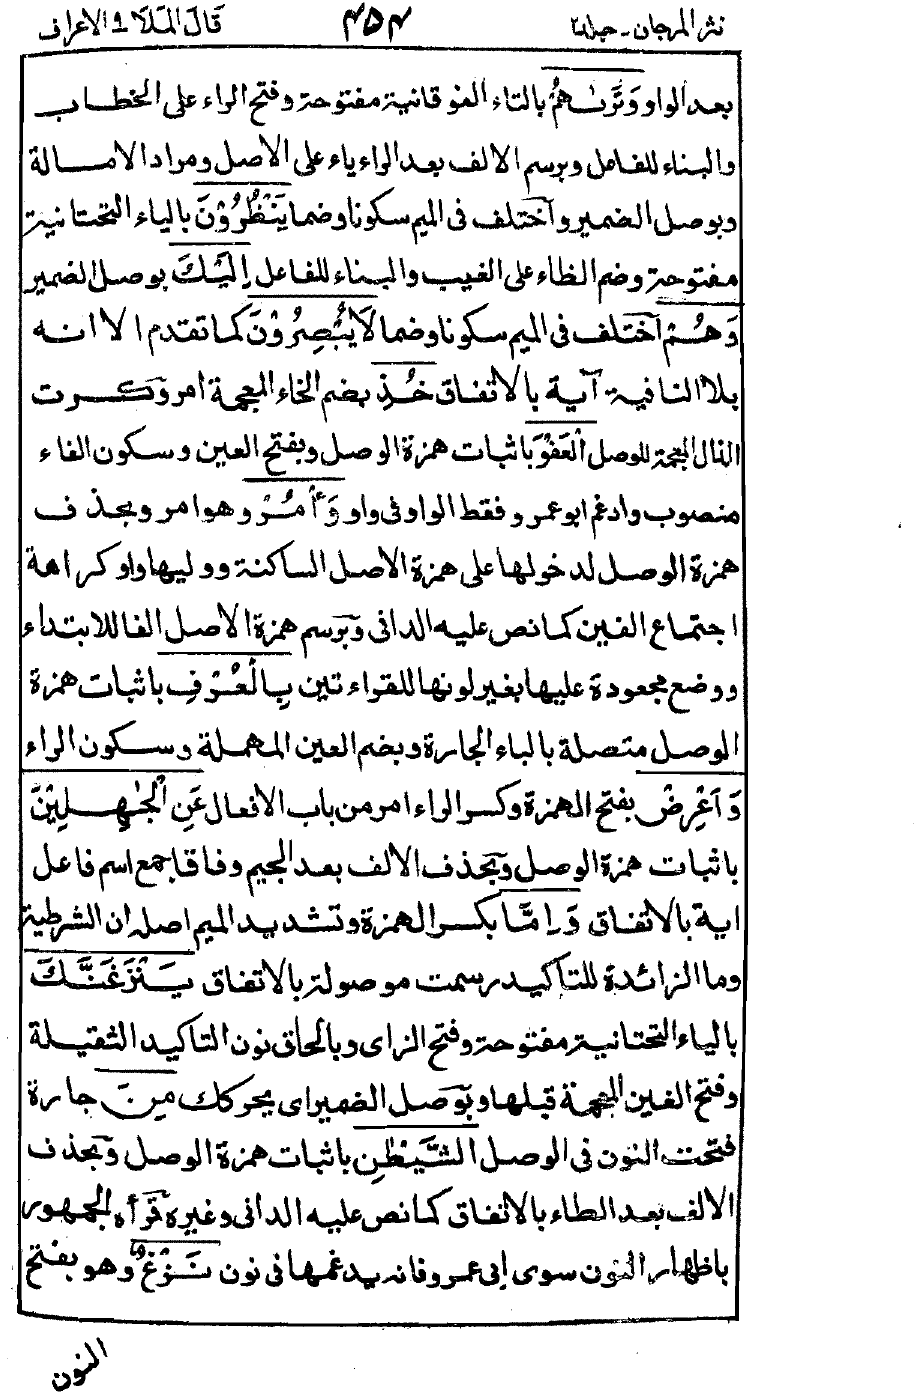 نثر المرجان - جلد٢ ٤٥٤ قال الملا ٩ الاعراف
بعد الواو وَتَرٰىهُمْ بالتاء الفوقانية مفتوحة وفتح الراء على الخطاب
والبناء للفاعل وبرسم الالف بعد الراء ياء على الاصل ومراد الامالة
وبوصل الضمير واختلف فى الميم سكونا وضما يَنْظُرُوْنَ بالياء التحتانية
مفتوحة وضم الظاء على الغيب والبناء للفاعل اِلَيْكَ بوصل الضمير
وَهُمْ اختلف فى الميم سكونا وضما لَا يُبْصِرُوْنَ كما تقدم الا انه
بلا النافية آية بالاتفاق خُذِ بضم الخاء المعجمة امر وكسرت
الذال المعجمة للوصل الْعَفْوَ باثبات همزة الوصل وبفتح العين وسكون الفاء
منصوب وادغم ابو عمرو فقط الواو فى واو وَأْمُرْ وهو امر وبحذف
همزة الوصل لدخولها على همزة الاصل الساكنة ووليها واو كراهة
اجتماع الفين كما نص عليه الدانى وبرسم همزة الاصل الفا للابتداء
ووضع مجعودة عليها بغير لونها للقراءتين بِالْعُرْفِ باثبات همزة
الوصل متصلة بالباء الجارة وبضم العين المهملة وسكون الراء
وَاَعْرِضْ بفتح الهمزة وكسر الراء امر من باب الافعال عَنِ الْجٰهِلِيْنَ
باثبات همزة الوصل وبحذف الالف بعد الجيم وفاقا جمع اسم فاعل
اية بالاتفاق وَاِمَّا بكسر الهمزة وتشديد الميم اصله ان الشرطية
وما الزائدة للتاكيد رسمت موصولة بالاتفاق يَنْزَغَنَّكَ
بالياء التحتانية مفتوحة وفتح الزاى وبالحاق نون التاكيد الثقيلة
وفتح الغين المعجمة قبلها وبوصل الضمير اى يحركك مِنَ جارة
فتحت النون فى الوصل الشَّيْطٰنِ باثبات همزة الوصل وبحذف
الالف بعد الطاء بالاتفاق كما نص عليه الدانى وغيره قرأه الجمهور
باظهار النون سوى ابى عمرو فانه يدغمها فى نون نَزْغٌ وهو بفتح
النون